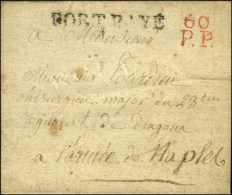 PORT PAYÉ
60
P.P.
à Monsieur
Monsieur
chirurgien major du 28 em
régiment de dragons
à l'armée de Naples